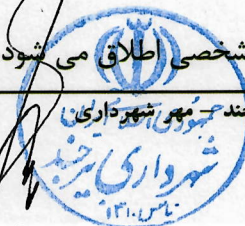 شخصی اطلاق می شود
ند - مهر شهرداری
جمهوری اسلامی ایران
شهرداری بیرجند
تاسیس ۱۳۱۰